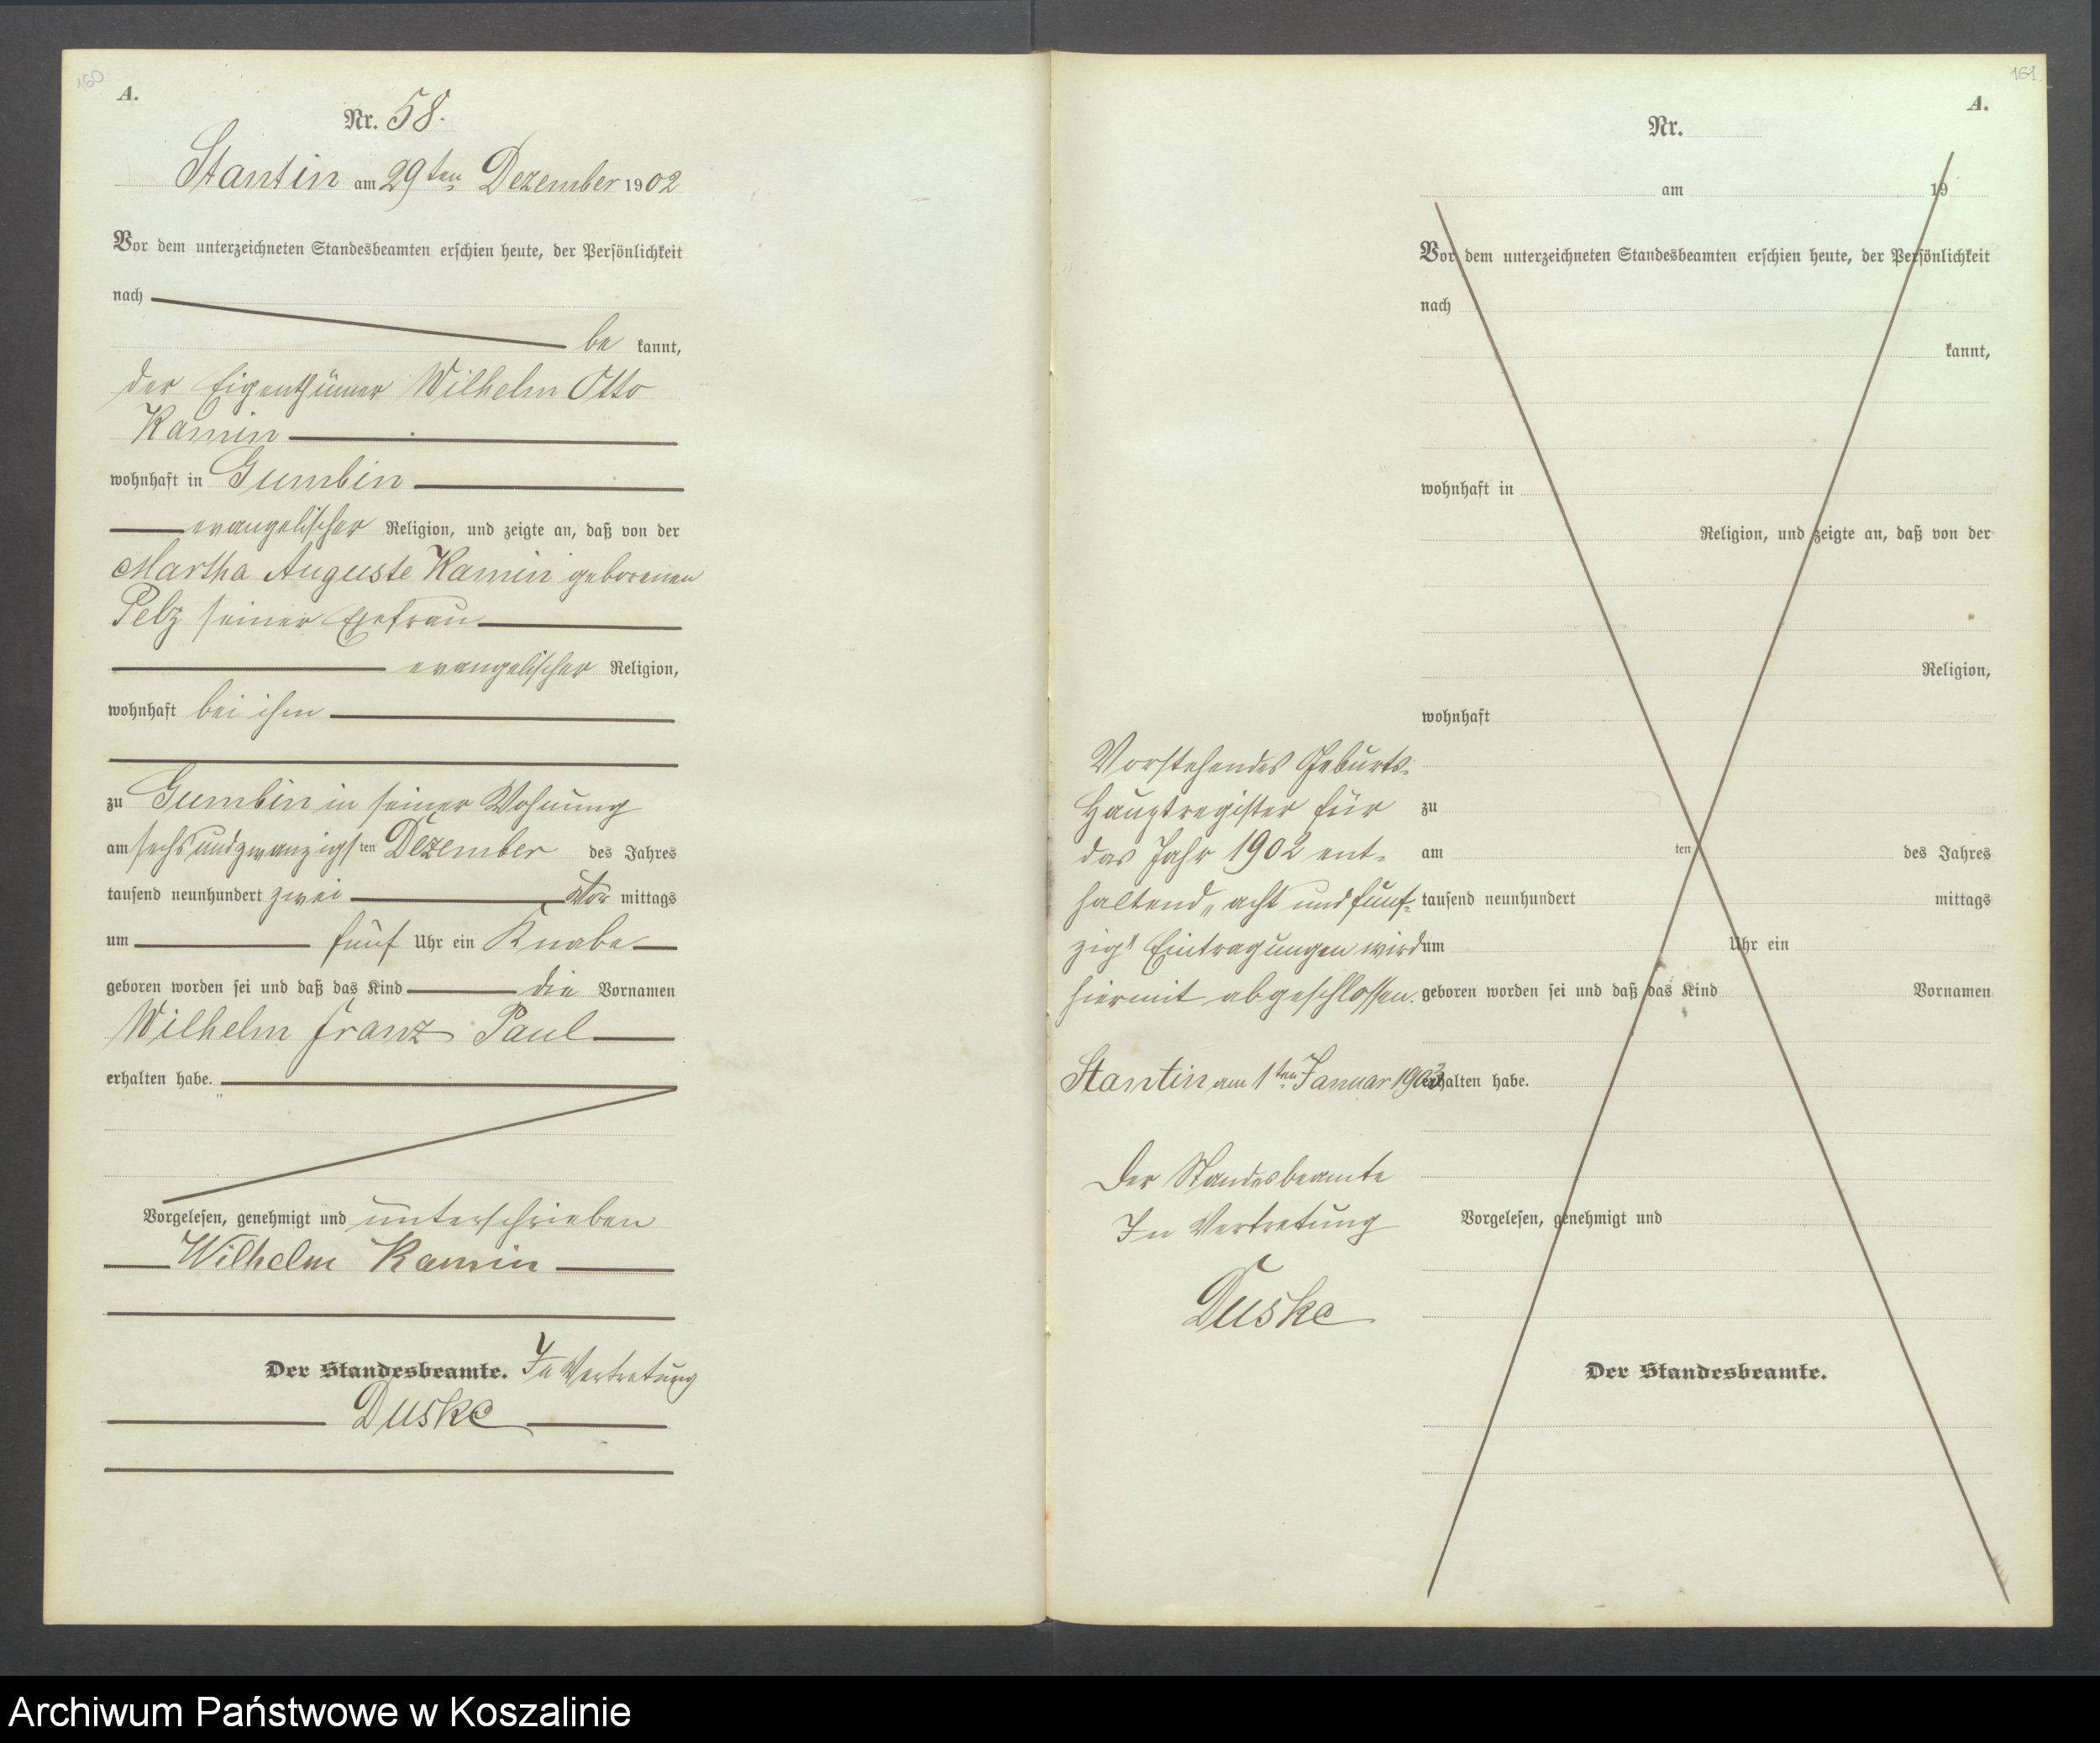 160
A.
Nr. 58.
Stantin am 29ten Dezember 1902
Vor dem unterzeichneten Standesbeamten erschien heute, der Persönlichkeit
nach
be kannt,
der Eigenthümer Wilhelm Otto
Kamin
wohnhaft in Gumbin
evangelischer Religion, und zeigte an, daß von der
Martha Auguste Kamin geborenen
Pelz seiner Ehefrau
evangelischer Religion,
wohnhaft bei ihm
zu Gumbin in seiner Wohnung
am sechsundzwanzigsten Dezember des Jahres
tausend neunhundert zwei Vor mittags
um fünf Uhr ein Knabe
geboren worden sei und daß das Kind die Vornamen
Wilhelm Franz Paul
erhalten habe.
Vorgelesen, genehmigt und unterschrieben
Wilhelm Kamin
Der Standesbeamte. In Vertretung
Duske
161
A.
Nr.
am 19
Vor dem unterzeichneten Standesbeamten erschien heute, der Persönlichkeit
nach
kannt,
wohnhaft in
Religion, und zeigte an, daß von der
Religion,
wohnhaft
zu
am ten des Jahres
tausend neunhundert mittags
um Uhr ein
geboren worden sei und daß das Kind Vornamen
erhalten habe.
Vorgelesen, genehmigt und
Der Standesbeamte.
Vorstehendes Geburts-
Hauptregister für
das Jahr 1902 ent-
haltend „acht und fünf-
zig" Eintragungen wird
hiermit abgeschlossen.
Stantin am 1ten Januar 1903
Der Standesbeamte
In Vertretung
Duske
Archiwum Państwowe w Koszalinie